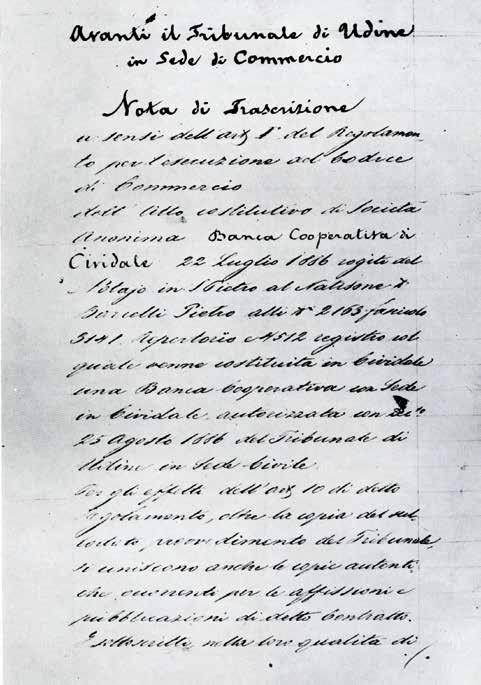 Avanti il Tribunale di Udine
in Sede di Commercio
Nota di Trascrizione
a sensi dell'art. 1° del Regolamen-
to per l'esecuzione del Codice
di Commercio
dell'Atto costitutivo di Società
Anonima Banca Cooperativa di
Cividale 22 Luglio 1886 rogiti del
Notajo in S Pietro al Natisone Dr
Pietro alli Ni 2165 fascicolo
3141. Repertorio N 512 registro col
quale venne costituita in Cividale
una Banca Cooperativa con Sede
in Cividale, autorizzata con
25 Agosto 1886 del Tribunale di
Udine in Sede Civile.
Per gli effetti dell'art. 10 di detto
Regolamento, oltre la copia del sul-
lodato provvedimento del Tribunale,
si uniscono anche le copie autenti-
che occorrenti per le affissioni e
pubblicazioni di detto Contratto.
I sottoscritti, nella loro qualità di